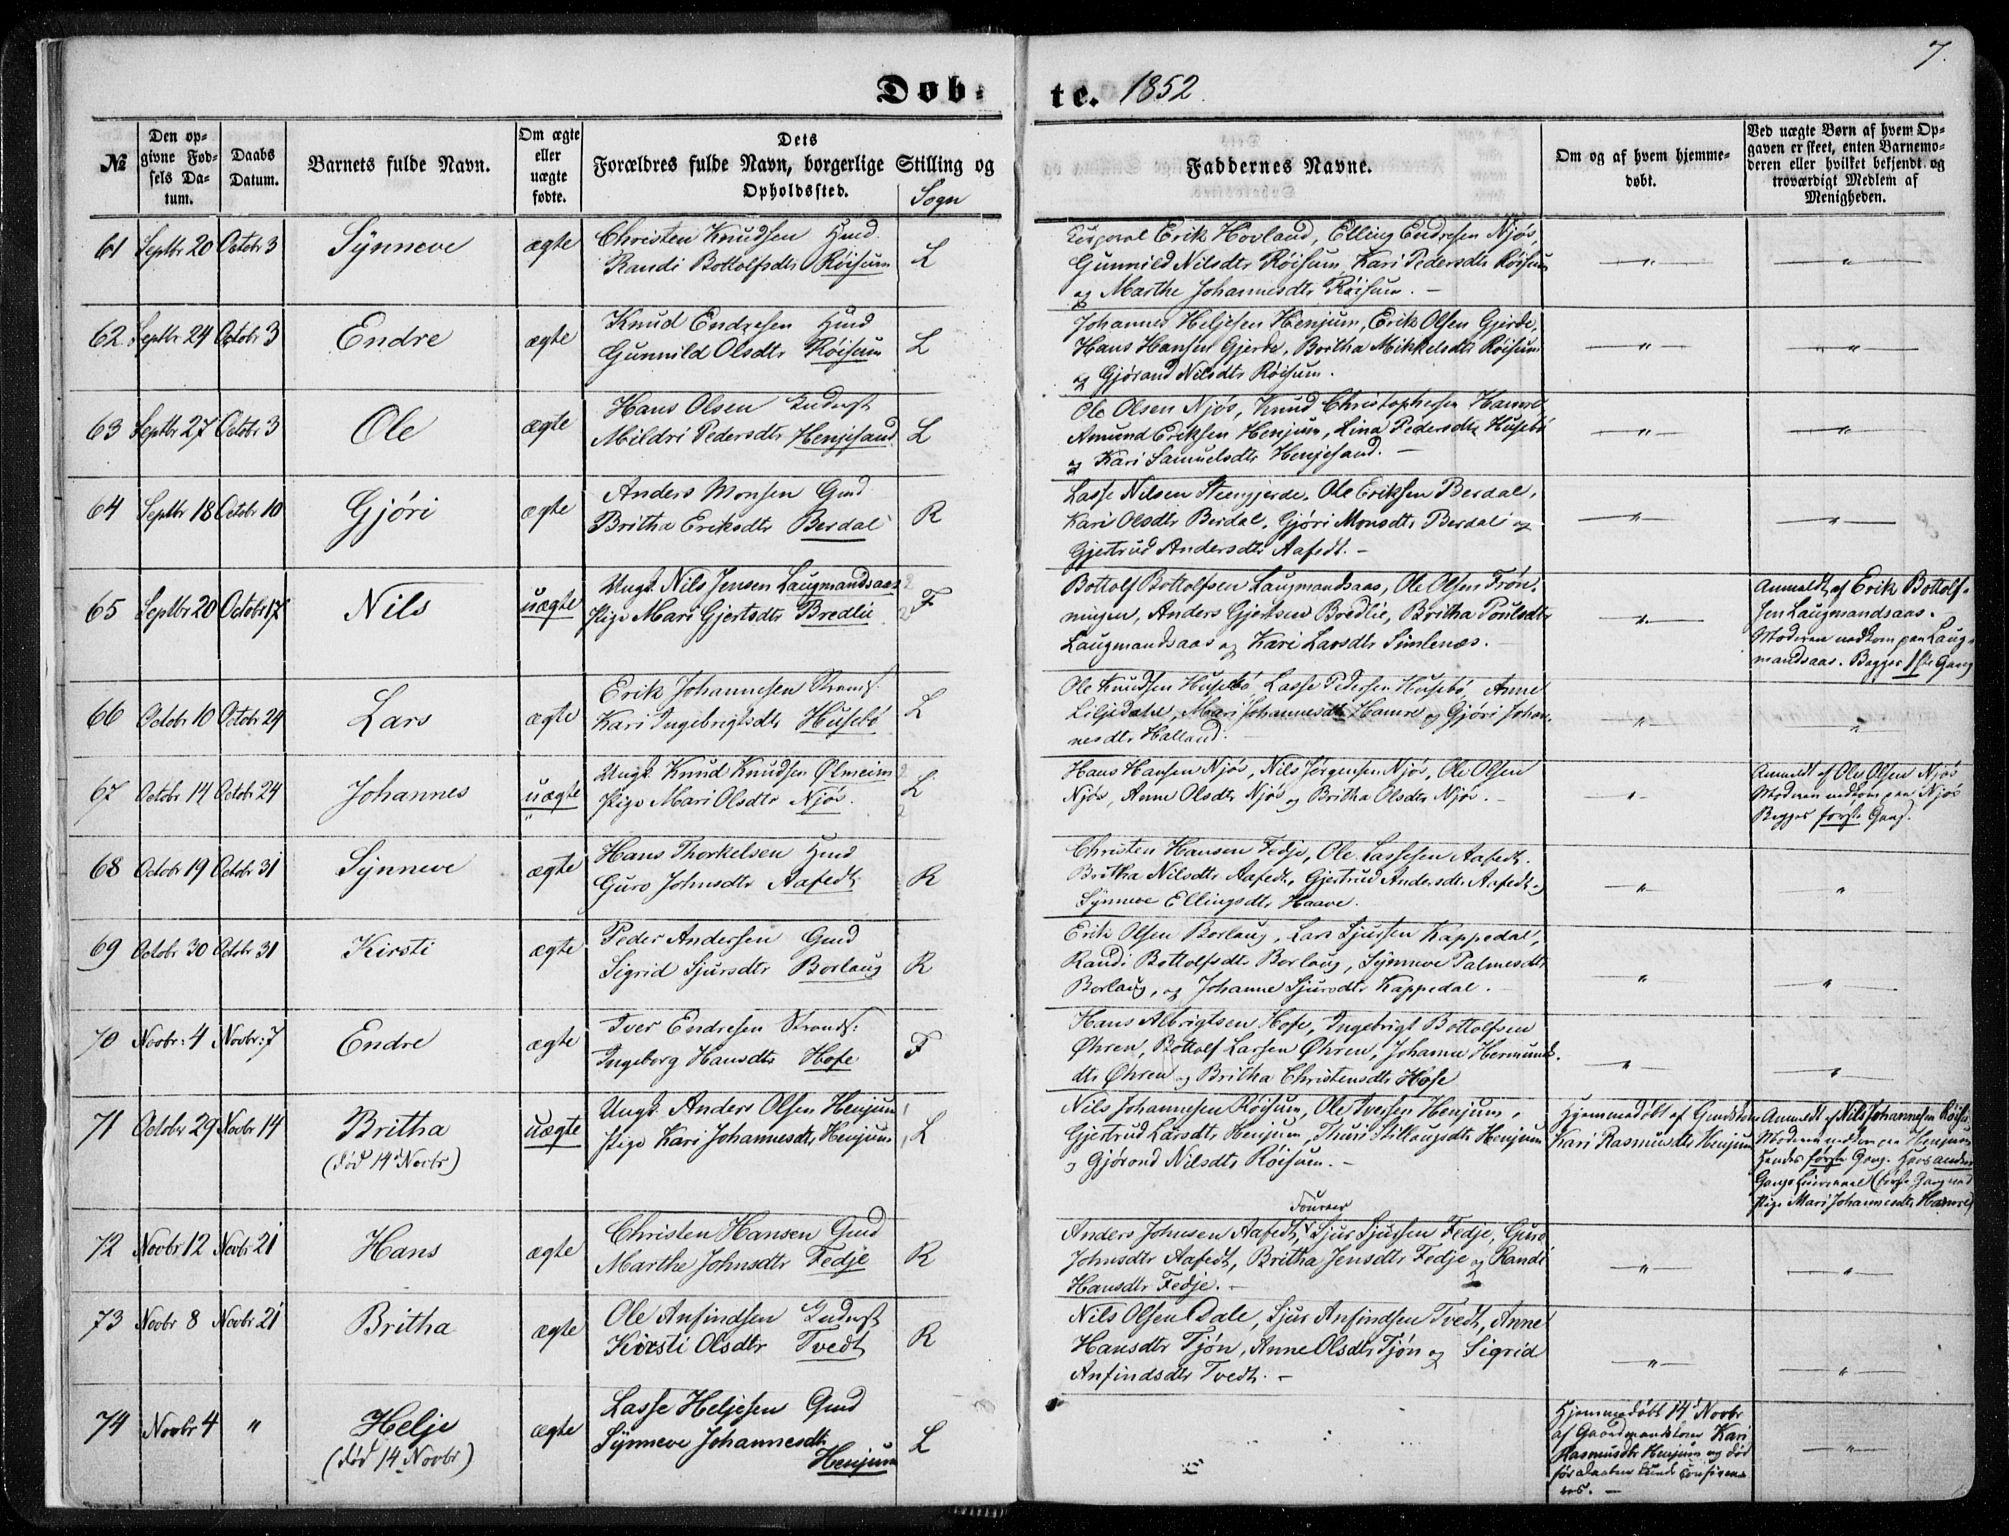 7.
Døb= te. 1852.
№
Den op=
givne Fød=
sels Da=
tum.
Daabs
Datum.
Barnets fulde Navn.
Om ægte
eller
uægte
fødte.
Dets
Forældres fulde Navn, borgerlige Stilling og
Opholdssted.
Sogn
Faddernes Navne.
Om og af hvem hjemme-
døbt.
Ved uægte Børn af hvem Op-
gaven er skeet, enten Barnemo-
deren eller hvilket bekjendt og
troværdigt Medlem af
Menigheden.
61 Septbr 20 Octobr 3 Synneve ægte
Christen Knudsen Hmd
Randi Bottolfsdtr Røisum L
Erik Hovland, Elling Endresen Njøs,
Gunnild Nilsdtr Røisum, Kari Pedersdtr Røisum
og Marthe Johannesdtr Røisum. —
62 Septbr 24 Octobr 3 Endre ægte
Knud Endresen Hmd
Gunnild Olsdtr Røisum L
Johannes Heljesen Henjum, Erik Olsen Gjerde,
Hans Hansen Gjerde, Britha Mikkelsdtr Røisum
og Gjørand Nilsdtr Røisum.
63 Septbr 27 Octobr 3 Ole ægte
Hans Olsen Inderst
Mildri Pedersdtr Henjesand L
Ole Olsen Njøs, Knud Christophersen Hamre
Amund Eriksen Henjum, Lina Pedersdtr Husebö
og Kari Samuelsdtr Henjesand. —
64 Septbr 18 Octobr 10 Gjøri ægte
Anders Monsen Gmd
Britha Eriksdtr Berdal R
Lasse Nilsen Steengjerde, Ole Eriksen Berdal,
Kari Olsdtr Berdal, Gjøri Monsdtr Berdal og
Gjertrud Andersdtr Aafedt. —
65 Septbr 20 Octobr 17 Nils uægte
Ungk. Nils Jensen Laugmandsaas
Pige Mari Gjertsdtr Bredlie F
Bottolf Bottolfsen Laugmandsaas, Ole Olsen Trøn-
ningen, Anders Gjertsen Bredlie, Britha Povelsdtr
Laugmandsaas og Kari Larsdtr Simlenæs.
Anmeldt af Erik Bottolf-
sen Laugmandsaas.
Moderen nedkom paa Laug-
mandsaas. Begges 1ste Gang
66 Octobr 10 Octobr 24 Lars ægte
Erik Johannesen Strands.
Kari Ingebrigtsdtr Husebö L
Ole Knudsen Husebö, Lasse Pedersen Husebö, Anne
Liljedahl, Mari Johannesdtr Hamre og Gjøri Johan-
nesdtr Halland.
67 Octobr 14 Octobr 24 Johannes uægte
Ungk. Knud Knudsen Ølmeim
Pige Mari Olsdtr Njøs. L
Hans Hansen Njøs, Nils Jørgensen Njøs, Ole Olsen
Njøs, Anne Olsdtr Njøs og Britha Olsdtr Njøs. —
Anmeldt af Ole Olsen Njøs
Moderen nedkom paa Njøs
Begges første Gang.
68 Octobr 19 Octobr 31 Synneve ægte
Hans Thorkelsen Hmd
Guro Johnsdtr Aafedt R
Christen Hansen Fedje, Ole Lassesen Aafedt.
Britha Nilsdtr Aafedt, Gjertrud Andersdtr Aafedt og
Synneve Ellingsdtr Haave.
69 Octobr 30 Octobr 31 Kirsti ægte
Peder Andersen Gmd
Sigrid Sjursdtr Borlaug R
Erik Olsen Borlaug, Lars Sjursen Kappedal,
Randi Bottolfsdtr Borlaug, Synneve Palmesdtr
Borlaug, og Johanne Sjursdtr Kappedal.
70 Novbr: 4 Novbr: 7 Endre ægte
Iver Endresen Strands:
Ingeborg Hansdtr Hofe F
Hans Albrigtsen Hofe, Ingebrigt Bottolfsen
Øhren, Bottolf Larsen Øhren, Johanne Hermunds-
dtr Øhren og Britha Christensdtr Hofe
71 October 29 Novbr 14 Britha uægte
(død 14d Novbr)
Ungk. Anders Olsen Henjum
Pige Kari Johannesdtr Henjum L
Nils Johannesen Røisum, Ole Iversen Henjum,
Gjertrud Larsdtr Henjum, Thuri Stillaugsdtr Henjum
og Gjørond Nilsdtr Røisum. —
Hjemmedöbt af Gmdskone
Kari Rasmusdtr Henjum
Anmeldt af Nils Johannesen Röisum
Moderen nedkom paa Henjum
Hendes første Gang. Hans anden
Gangs Leiermaal (første Gang med
Pige Mari Johannesdtr Hamre)
72 Novbr 12 Novbr 21 Hans ægte
Christen Hansen Gmd
Marthe Johnsdtr Fedje R
Anders Johnsen Aafedt, Sjur Sjursen Fedje, Guro
Johnsdtr Aafedt, Britha Jensdtr Fedje og Randi
Hansdtr Fedje. —
73 Novbr 8 Novbr 21 Britha ægte
Ole Anfindsen Inderst
Kirsti Olsdtr Tvedt R
Nils Olsen Dale, Sjur Anfindsen Tvedt, Anne
Hansdtr Tjøn, Anne Olsdtr Tjøn og Sigrid
Anfindsdtr Tvedt. —
74 Novbr 4 " Helje ægte
(død 14 Novbr)
Lasse Heljesen Gmd
Synneve Johannesdtr
Henjum L
Hjemmedöbt 14d Novbr
af Gaardmandskone Kari
Rasmusdtr Henjum og död
før Daaben kunde confirme-
res. —